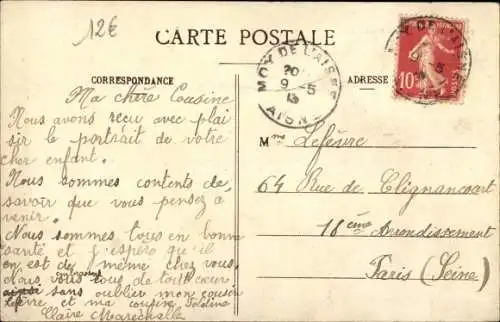 12€
CARTE POSTALE
CORRESPONDANCE
ADRESSE
MOY DE L'AISNE
20
9-5
13
AISNE
10
Ma chère Cousine
Nous avons reçu avec plai
sir le portrait de votre
cher enfant.
Nous sommes contents de
savoir que vous pensez à
venir.
Nous sommes tous en bonne
santé et j'espère qu'il
en est de même chez vous.
vous tous de tout cœur
sans oublier mon cousin
Lefèvre et ma cousine
Claire
Mlle Lefèvre
64 Rue de Clignancourt
18ème Arrondissement
Paris (Seine)